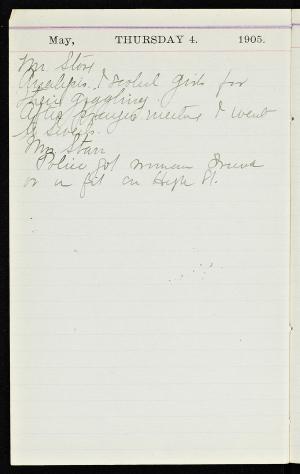 May, THURSDAY 4. 1905.
Mr Store
Analysis. I scolded girls for
their giggling
After prayer meeting I went
to
Mr Starr
Police got woman
or in fit on High St.